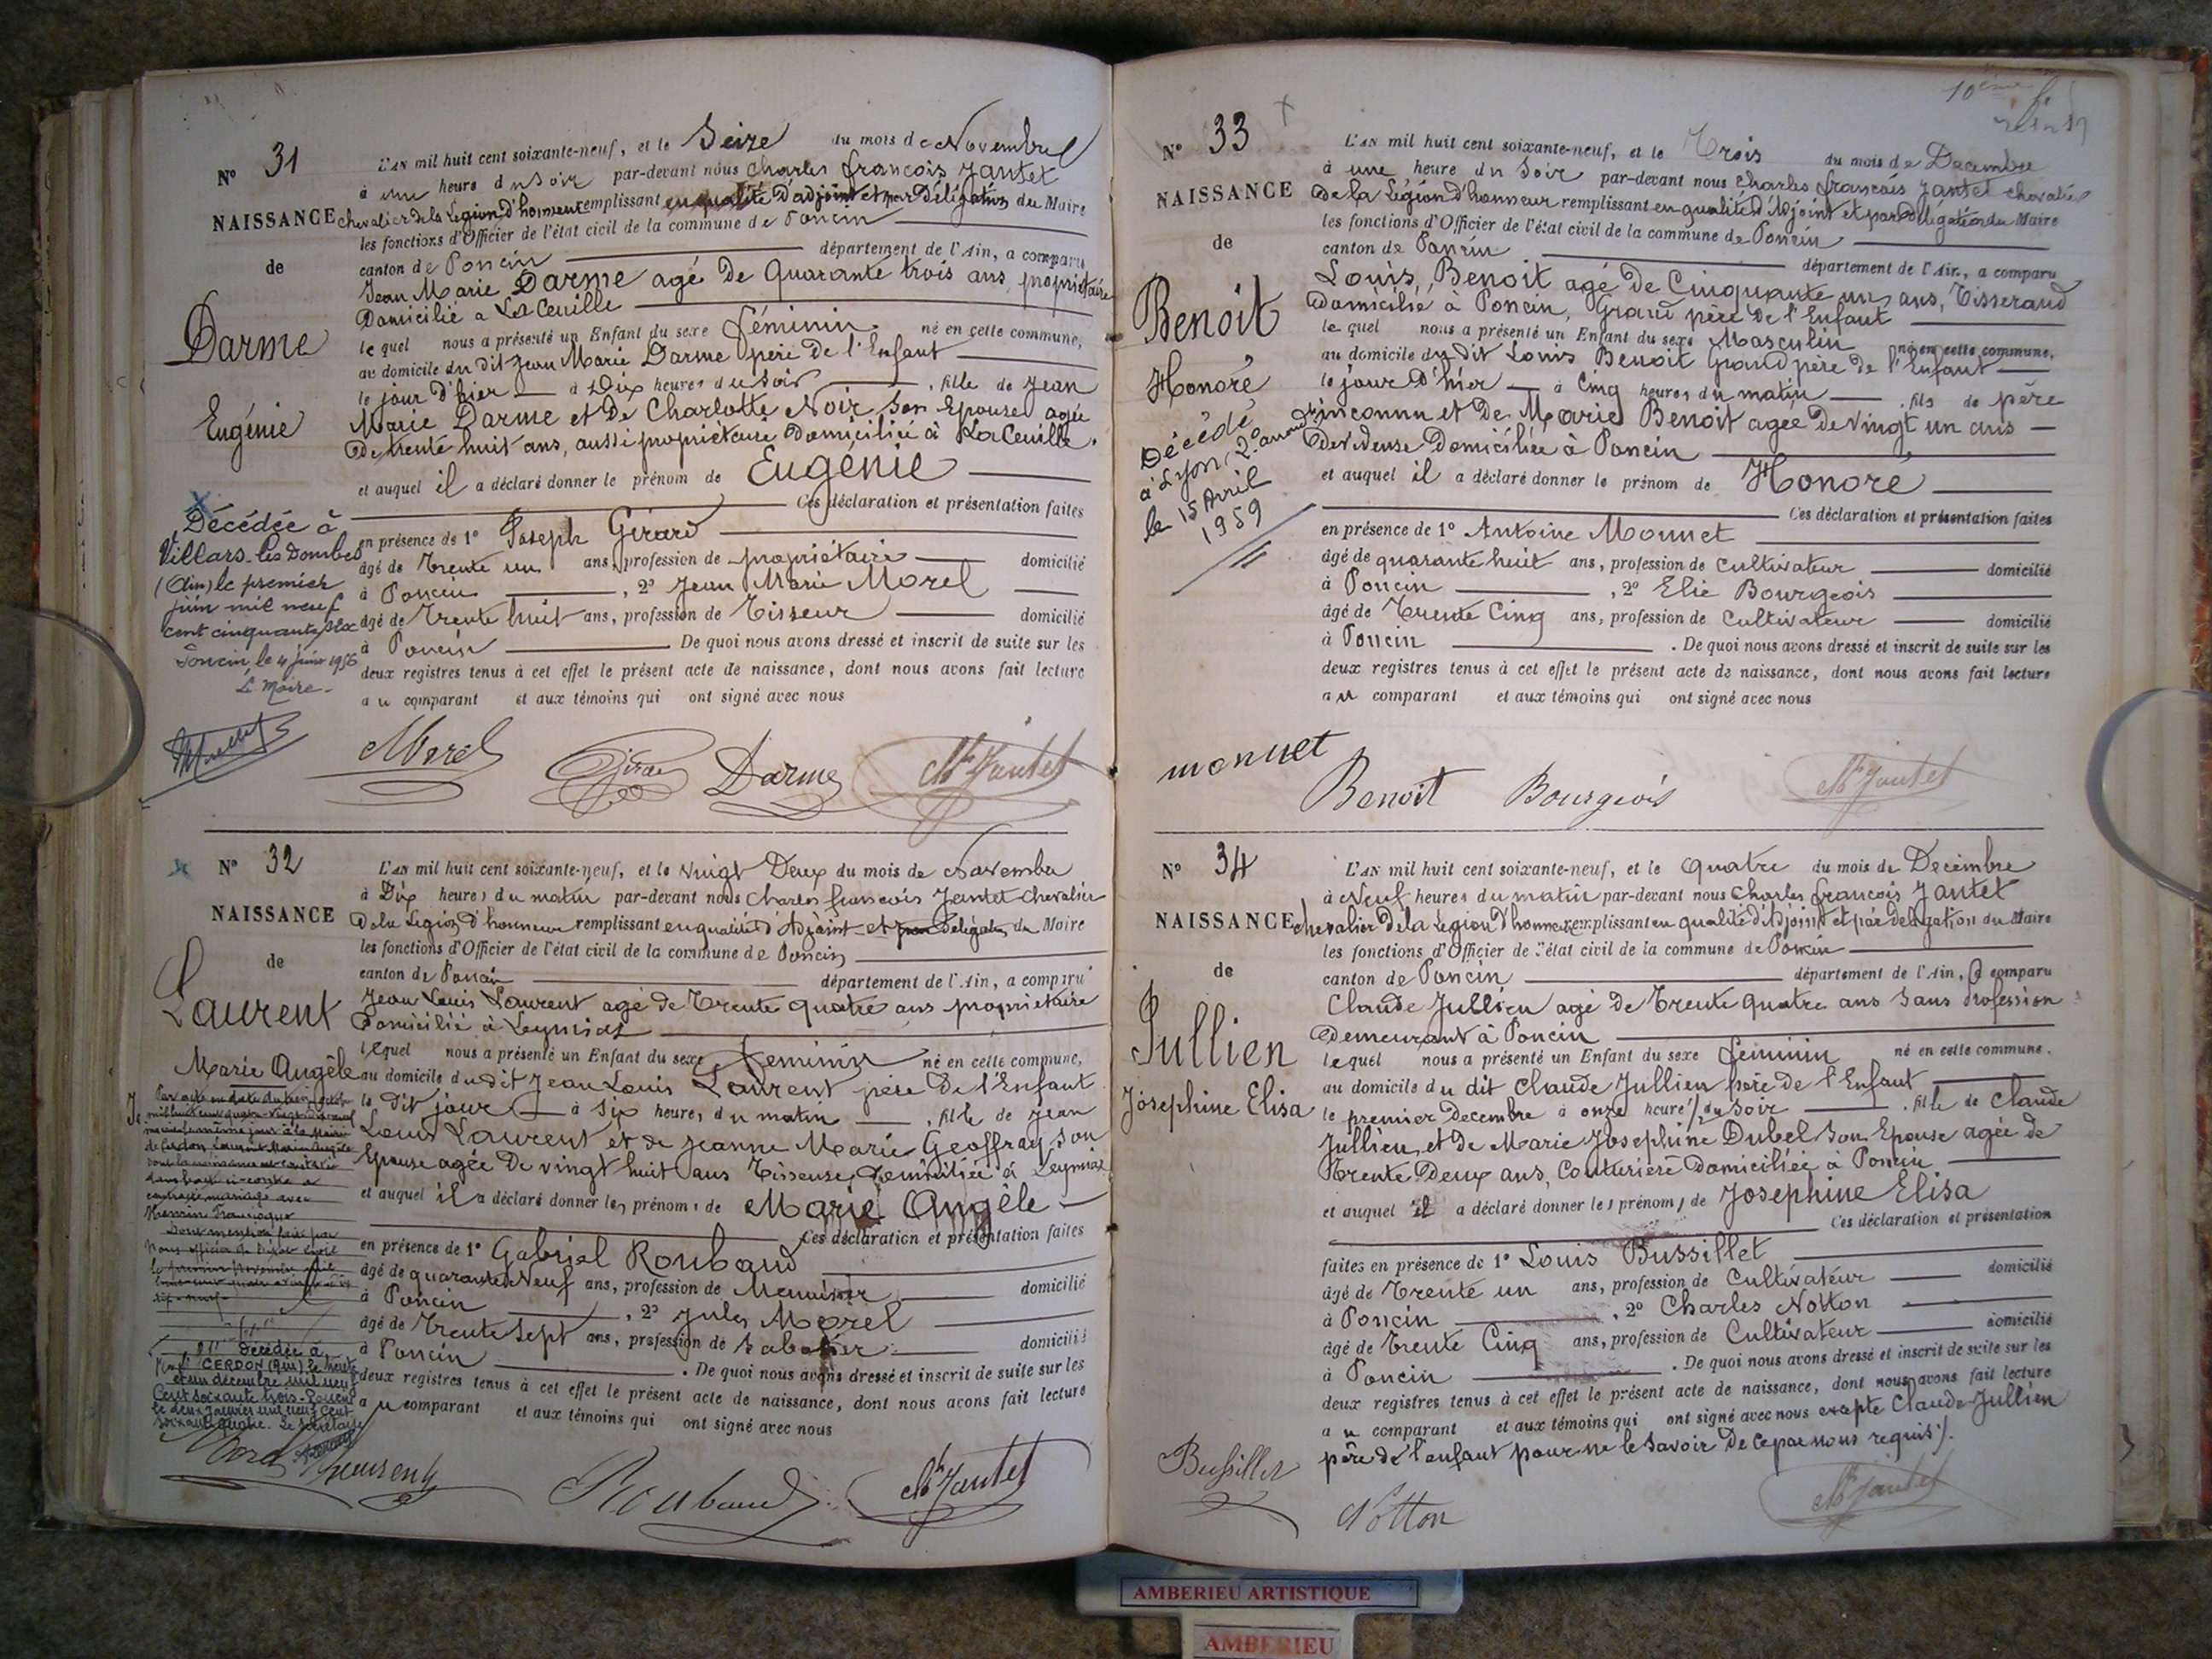 N° 31
NAISSANCE
de
Darme
Eugénie
Décédée à
Villars-les-Dombes
(Ain) le premier
juin mil neuf
cent cinquante six
Poncin, le 4 juin 1956
Le Maire.
L'AN mil huit cent soixante-neuf, et le Seize du mois de Novembre
à une heure du Soir par-devant nous Charles françois Jantet
chevalier de la Légion d'honneur remplissant en qualité D'adjoint et par Délégation du Maire
les fonctions d'Officier de l'état civil de la commune de Poncin
canton de Poncin département de l'Ain, a comparu
Jean Marie Darme agé de Quarante trois ans, propriétaire
Domicilié a La Ceuille
lequel nous a présenté un Enfant du sexe féminin né en cette commune,
au domicile du dit Jean Marie Darme père de l'Enfant
le jour d'hier à Dix heures du Soir, fille de Jean
Marie Darme et de Charlotte Noir son Epouse agée
de trente huit ans, aussi propriétaire Domiciliée à La Ceuille.
et auquel il a déclaré donner le prénom de Eugénie
Ces déclaration et présentation faites
en présence de 1° Joseph Girard
âgé de Trente un ans, profession de propriétaire domicilié
à Poncin, 2° Jean Marie Morel
âgé de Trente huit ans, profession de Tisseur domicilié
à Poncin De quoi nous avons dressé et inscrit de suite sur les
deux registres tenus à cet effet le présent acte de naissance, dont nous avons fait lecture
au comparant et aux témoins qui ont signé avec nous
Morel Girard Darme Ch Jantet
N° 32
NAISSANCE
de
Laurent
Marie Angèle
Décédée à
CERDON (Ain) le trente
et un décembre mil neuf
Cent soixante trois - Poncin
le deux Janvier mil neuf Cent
soixante quatre. Le Secrétaire
L'AN mil huit cent soixante-neuf, et le vingt Deux du mois de Novembre
à Dix heures du matin par-devant nous Charles françois Jantet chevalier
De la Légion d'honneur remplissant en qualité d'Adjoint et par Délégation du Maire
les fonctions d'Officier de l'état civil de la commune de Poncin
canton de Poncin département de l'Ain, a comparu
Jean Louis Laurent agé de Trente quatre ans propriétaire
Domicilié à Leymiat
lequel nous a présenté un Enfant du sexe féminin né en cette commune,
au domicile du dit Jean Louis Laurent père de l'Enfant
le dit jour à six heures du matin, fille de Jean
Louis Laurent et de Jeanne Marie Geoffray son
Epouse agée De vingt huit ans Tisseuse Domiciliée à Leymiat
et auquel il a déclaré donner les prénoms de Marie Angèle
Ces déclaration et présentation faites
en présence de 1° Gabriel Roubaud
âgé de quarante Neuf ans, profession de Menuisier domicilié
à Poncin, 2° Jules Morel
âgé de Trente Sept ans, profession de Sabotier domicilié
à Poncin. De quoi nous avons dressé et inscrit de suite sur les
deux registres tenus à cet effet le présent acte de naissance, dont nous avons fait lecture
au comparant et aux témoins qui ont signé avec nous
Morel Laurent Roubaud Ch Jantet
10ème
N° 33
NAISSANCE
de
Benoit
Honoré
Décédé
à Lyon, 2e arrondt
le 15 Avril
1959
L'AN mil huit cent soixante-neuf, et le Trois du mois de Décembre
à une heure du Soir par-devant nous Charles françois Jantet chevalier
de la Légion d'honneur remplissant en qualité d'Adjoint et par délégation du Maire
les fonctions d'Officier de l'état civil de la commune de Poncin
canton de Poncin département de l'Ain, a comparu
Louis, Benoit agé de Cinquante un ans, Tisserand
domicilié à Poncin, Grand père de l'Enfant
lequel nous a présenté un Enfant du sexe Masculin né en cette commune,
au domicile du dit Louis Benoit Grand père de l'Enfant
le jour D'hier à Cinq heures du matin, fils de père
inconnu et de Marie Benoit agée de vingt un ans
devideuse Domiciliée à Poncin
et auquel il a déclaré donner le prénom de Honoré
Ces déclaration et présentation faites
en présence de 1° Antoine Monnet
âgé de quarante huit ans, profession de cultivateur domicilié
à Poncin, 2° Elie Bourgeois
âgé de Trente Cinq ans, profession de Cultivateur domicilié
à Poncin. De quoi nous avons dressé et inscrit de suite sur les
deux registres tenus à cet effet le présent acte de naissance, dont nous avons fait lecture
au comparant et aux témoins qui ont signé avec nous
monnet Benoit Bourgeois Ch Jantet
N° 34
NAISSANCE
de
Jullien
Josephine Elisa
L'AN mil huit cent soixante-neuf, et le quatre du mois de Décembre
à Neuf heures du matin par-devant nous Charles françois Jantet
chevalier De la Légion D'honneur remplissant en qualité d'Adjoint et par délégation du Maire
les fonctions d'Officier de l'état civil de la commune de Poncin
canton de Poncin département de l'Ain, a comparu
Claude Jullien agé de Trente quatre ans Sans Profession
Demeurant à Poncin
lequel nous a présenté un Enfant du sexe féminin né en cette commune.
au domicile du dit Claude Jullien père de l'Enfant
le premier Décembre à onze heures 1/2 du Soir, fille de Claude
Jullien et de Marie Josephine Dubel Son Epouse agée de
Trente Deux ans, Couturière domiciliée à Poncin
et auquel il a déclaré donner les prénoms de Josephine Elisa
Ces déclaration et présentation
faites en présence de 1° Louis Bussillet
âgé de Trente un ans, profession de Cultivateur domicilié
à Poncin, 2° Charles Notton
âgé de Trente Cinq ans, profession de Cultivateur domicilié
à Poncin. De quoi nous avons dressé et inscrit de suite sur les
deux registres tenus à cet effet le présent acte de naissance, dont nous avons fait lecture
au comparant et aux témoins qui ont signé avec nous excepté Claude Jullien
père de l'enfant pour ne le savoir de ce par nous requis.
Bussillet Notton Ch Jantet
AMBERIEU ARTISTIQUE
AMBERIEU